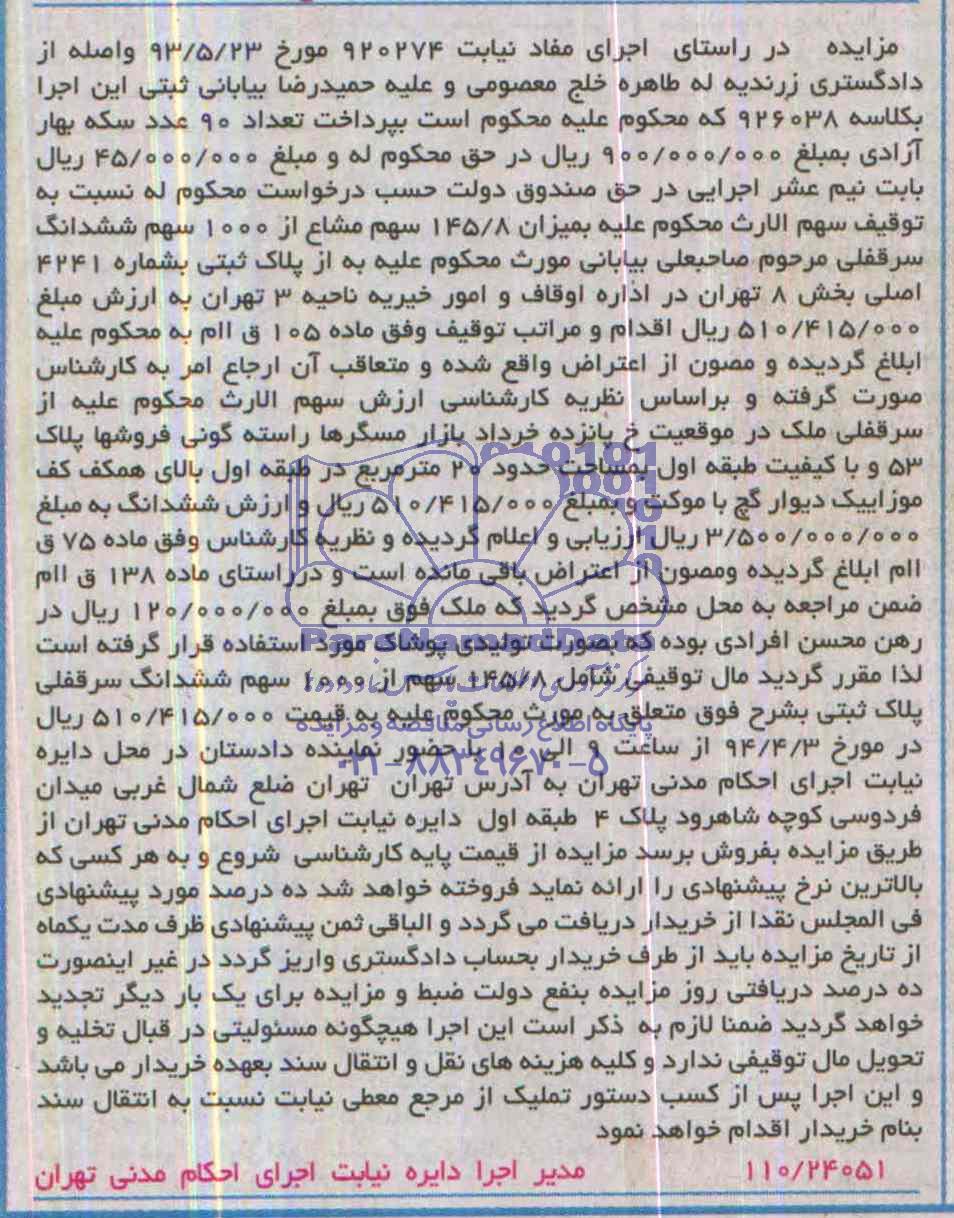 مزایده در راستای اجرای مفاد نیابت ۹۲۰۲۷۴ مورخ ۹۳/۵/۲۳ واصله از
دادگستری زرندیه له طاهره خلج معصومی و علیه حمیدرضا بیابانی ثبتی این اجرا
بکلاسه ۹۲۶۰۳۸ که محکوم علیه محکوم است بپرداخت تعداد ۹۰ عدد سکه بهار
آزادی بمبلغ ۹۰۰/۰۰۰/۰۰۰ ریال در حق محکوم له و مبلغ ۴۵/۰۰۰/۰۰۰ ریال
بابت نیم عشر اجرایی در حق صندوق دولت حسب درخواست محکوم له نسبت به
توقیف سهم الارث محکوم علیه بمیزان ۱۴۵/۸ سهم مشاع از ۱۰۰۰ سهم ششدانگ
سرقفلی مرحوم صاحبعلی بیابانی مورث محکوم علیه به از پلاک ثبتی بشماره ۴۲۴۱
اصلی بخش ۸ تهران در اداره اوقاف و امور خیریه ناحیه ۳ تهران به ارزش مبلغ
۵۱۰/۴۱۵/۰۰۰ ریال اقدام و مراتب توقیف وفق ماده ۱۰۵ ق اام به محکوم علیه
ابلاغ گردیده و مصون از اعتراض واقع شده و متعاقب آن ارجاع امر به کارشناس
صورت گرفته و براساس نظریه کارشناسی ارزش سهم الارث محکوم علیه از
سرقفلی ملک در موقعیت خ پانزده خرداد بازار مسگرها راسته گونی فروشها پلاک
۵۳ و با کیفیت طبقه اول بمساحت حدود ۲۰ مترمربع در طبقه اول بالای همکف کف
موزاییک دیوار گچ با موکت و بمبلغ ۵۱۰/۴۱۵/۰۰۰ ریال و ارزش ششدانگ به مبلغ
۳/۵۰۰/۰۰۰/۰۰۰ ریال ارزیابی و اعلام گردیده و نظریه کارشناس وفق ماده ۷۵ ق
اام ابلاغ گردیده ومصون از اعتراض باقی مانده است و در راستای ماده ۱۳۸ ق اام
ضمن مراجعه به محل مشخص گردید که ملک فوق بمبلغ ۱۲۰/۰۰۰/۰۰۰ ریال در
رهن محسن افرادی بوده که بصورت تولیدی پوشاک مورد استفاده قرار گرفته است
لذا مقرر گردید مال توقیفی شامل ۱۴۵/۸ سهم از ۱۰۰۰ سهم ششدانگ سرقفلی
پلاک ثبتی بشرح فوق متعلق به مورث محکوم علیه به قیمت ۵۱۰/۴۱۵/۰۰۰ ریال
پایگاه اطلاع رسانی مناقصه و مزایده
در مورخ ۹۴/۴/۳ از ساعت ۹ الی ۱۰ با حضور نماینده دادستان در محل دایره
۰۲۱-۸۸۳۴۹۶۷۰-۵
نیابت اجرای احکام مدنی تهران به آدرس تهران تهران ضلع شمال غربی میدان
فردوسی کوچه شاهرود پلاک ۴ طبقه اول دایره نیابت اجرای احکام مدنی تهران از
طریق مزایده بفروش برسد مزایده از قیمت پایه کارشناسی شروع و به هر کسی که
بالاترین نرخ پیشنهادی را ارائه نماید فروخته خواهد شد ده درصد مورد پیشنهادی
فی المجلس نقدا از خریدار دریافت می گردد و الباقی ثمن پیشنهادی ظرف مدت یکماه
از تاریخ مزایده باید از طرف خریدار بحساب دادگستری واریز گردد در غیر اینصورت
ده درصد دریافتی روز مزایده بنفع دولت ضبط و مزایده برای یک بار دیگر تجدید
خواهد گردید ضمنا لازم به ذکر است این اجرا هیچگونه مسئولیتی در قبال تخلیه و
تحویل مال توقیفی ندارد و کلیه هزینه های نقل و انتقال سند بعهده خریدار می باشد
و این اجرا پس از کسب دستور تملیک از مرجع معطی نیابت نسبت به انتقال سند
بنام خریدار اقدام خواهد نمود
۱۱۰/۲۴۰۵۱ مدیر اجرا دایره نیابت اجرای احکام مدنی تهران